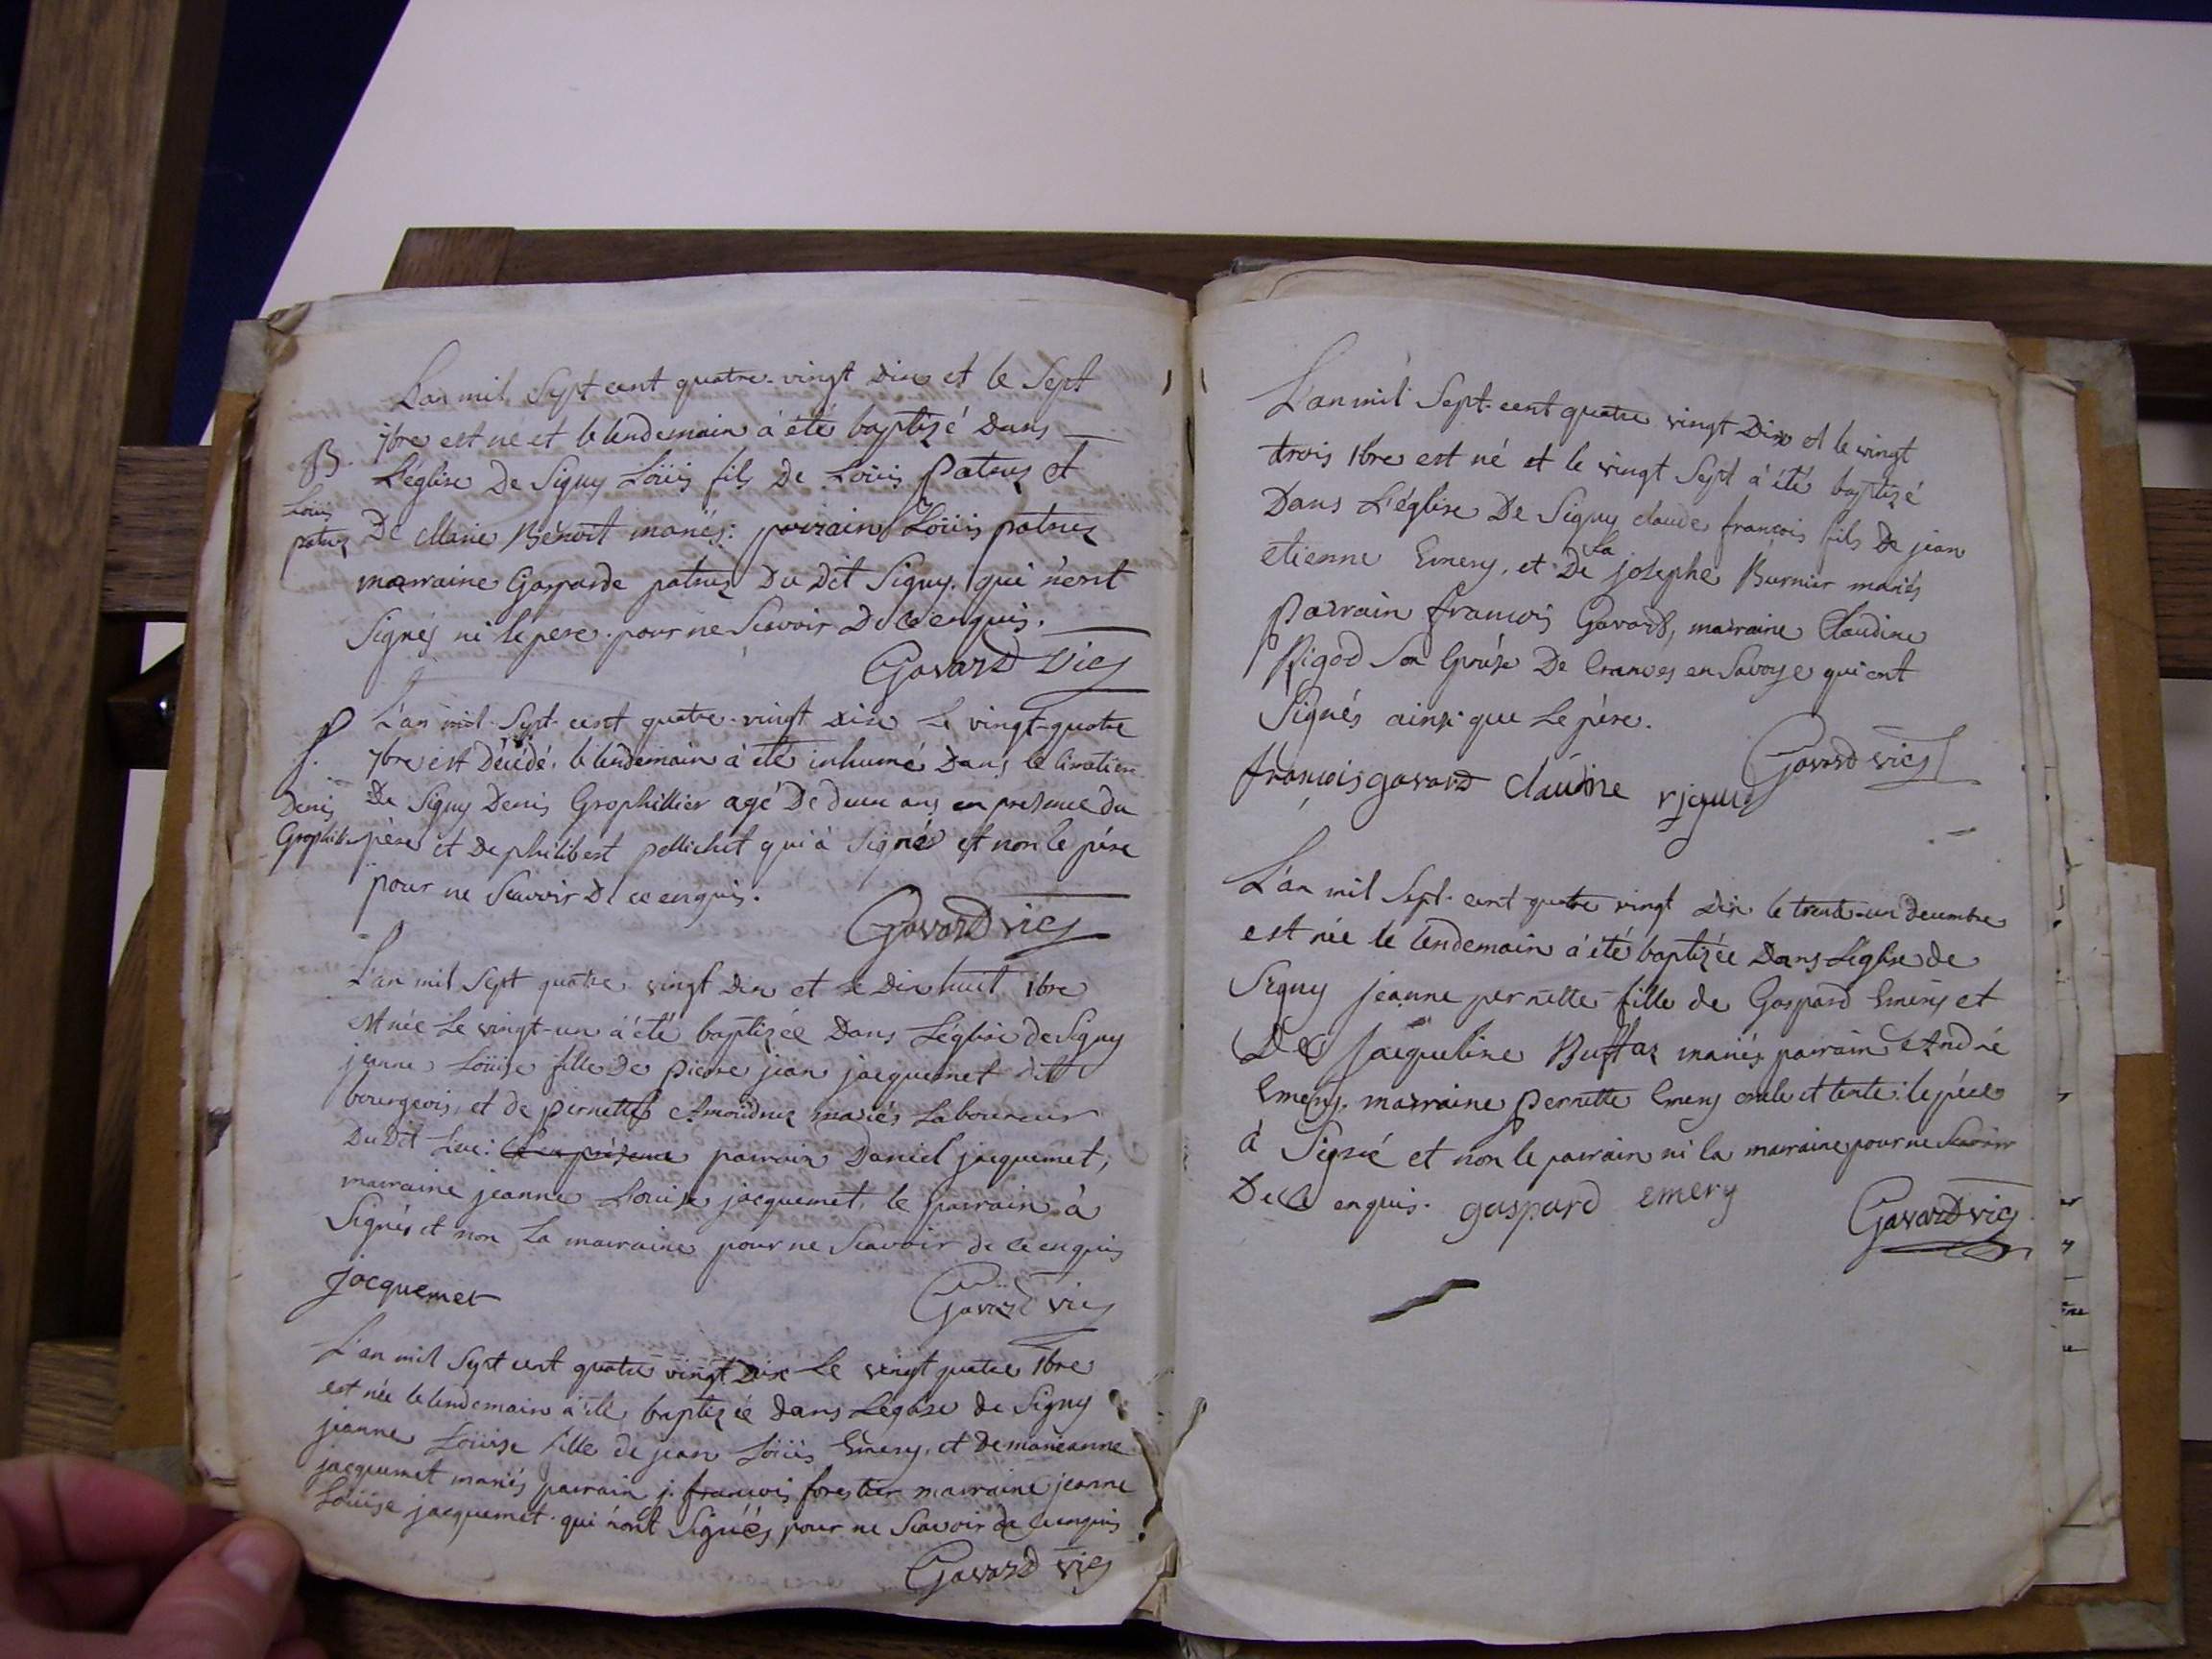 L'an mil Sept cent quatre-vingt Dix et le Sept
7bre est né et le lendemain à été baptizé Dans
B. L'église De Signy Loüis fils de Loüis patruz et
Loüis
patruz De Marie Benoit mariés: pairain Loüis patruz
marraine Gasparde patruz Du Dit Signy. qui n'ont
Signés ni le pere. pour ne Scavoir De ce enquis.
Gavard vic
L'an mil Sept-cent quatre-vingt Dix Le vingt-quatre
7bre est Décédé, le lendemain à été inhumé Dans le
Denis De Signy Denis Grophillier agé De deux ans en presence du
père et De philibert pellichet qui à Signé et non le père
pour ne Scavoir De ce enquis.
Gavard vic
L'an mil Sept quatre vingt Dix et le Dix huit
est née Le vingt-un à été baptizée Dans L'église de Signy
jeanne Loüise fille De Pierre jean jacquemet dit
bourgeois, et de pernette mariés Laboureur
Du Dit Lieu: pairain Daniel jacquemet,
mairaine jeanne Loüise jacquemet, le pairain à
Signés et non La mairaine pour ne Scavoir de ce enquis
jacquemet
Gavard vic
L'an mil Sept cent quatre vingt Dix Le vingt quatre
est née le lendemain à été baptizée dans L'église de Signy
jeanne Loüise fille de jean Loüis Emery, et De marieanne
jacquemet mariés pairain j. francois forestier mairaine jeanne
Loüise jacquemet. qui n'ont Signés pour ne Scavoir de ce enquis
Gavard vic
L'an mil Sept-cent quatre vingt Dix et le vingt
trois est né et le vingt Sept à été baptizé
Dans L'église De Signy claude francois fils De jean
etienne Emery, et De La josephe Burnier mariés
Parrain francois Gavard, mairaine Claudine
Rigod Son De en Savoye qui ont
Signés ainsi que Le père.
Gavard vic
francois gavard claudine
L'an mil Sept-cent quatre vingt Dix le trent-un decembre
est née le lendemain à été baptizée Dans L'église de
Signy jeanne pernette fille de Gaspard Emery et
De jacqueline Buffaz mariés pairain André
Emery. marraine Pernette Emery oncle et tente: le père
à Signé et non le pairain ni la mairaine pour ne Scavoir
De ce enquis. gaspard emery
Gavard vic